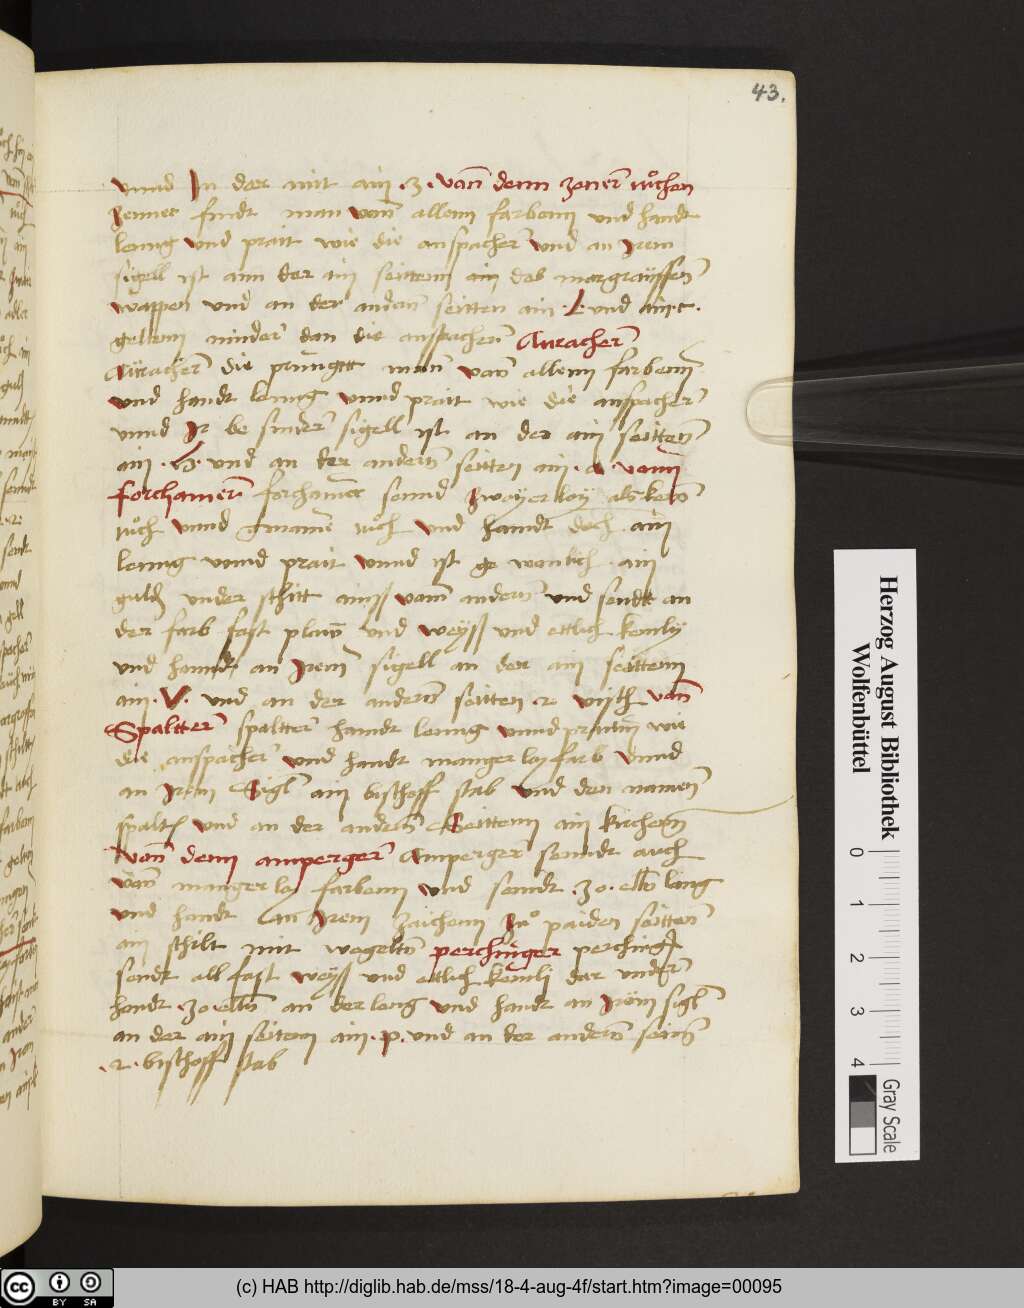 43.
vnnd In der mit ain .z. vonn denn zener tůchen
zenner findt man vonn allenn farbenn vnd handt
lenng vnd prait wie die anspacher vnd an Irem
sigell ist ann der ain seittenn ain das margrayffen
wappen vnd an der andern seitten ain .l. vnd ain .c.
geltenn minder dan die anspachern Auracher
Auracher die pringtt man vonn allenn farbenn
vnd handt lenng vnnd prait wie die anspacher
vnnd Ir be sinder sigell ist an der ain seitten
ain .h. vnd an der andern seitten ain .a. vonn
forchamern forchamer sennd zwayer lay als kern
tůch vnnd gmaine tůch vnd hanndt doch ain
lenng vnnd prait vnnd ist ge wonlich ain
guldn vnder schitt ainß vom andern vnd sendt an
der farb fast plaw vnd weyß vnd ettlich kemly
vnd hanndt an Irem sigell an der ain seittenn
ain .V. vnd an der andern seitten .2. visch vonn
Spaltter spaltter handt lenng vnnd praitin wie
die anspacher vnd handt manger lay farb vnnd
an Irem Sigl ain bischoff stab vnd den namen
spalt vnd an der andern Seittenn ain kirchenn
Vonn denn amperger Amperger senndt auch
von manger lay farbenn vnd senndt .30. elln lang
vnd handt an Irem zaichenn In paiden seitten
ain schilt mit wegeltn perchinger perching
sendt all fast weyß vnd ettlich kemli dar vnder
handt .30 elln an der leng vnd handt an Irem sigl
an der ain seitenn ain .p. vnd an der andern seitn
.2. bischoff stab
Herzog August Bibliothek
Wolfenbüttel
0 1 2 3 4
Gray Scale
cc BY SA
(c) HAB http://diglib.hab.de/mss/18-4-aug-4f/start.htm?image=00095